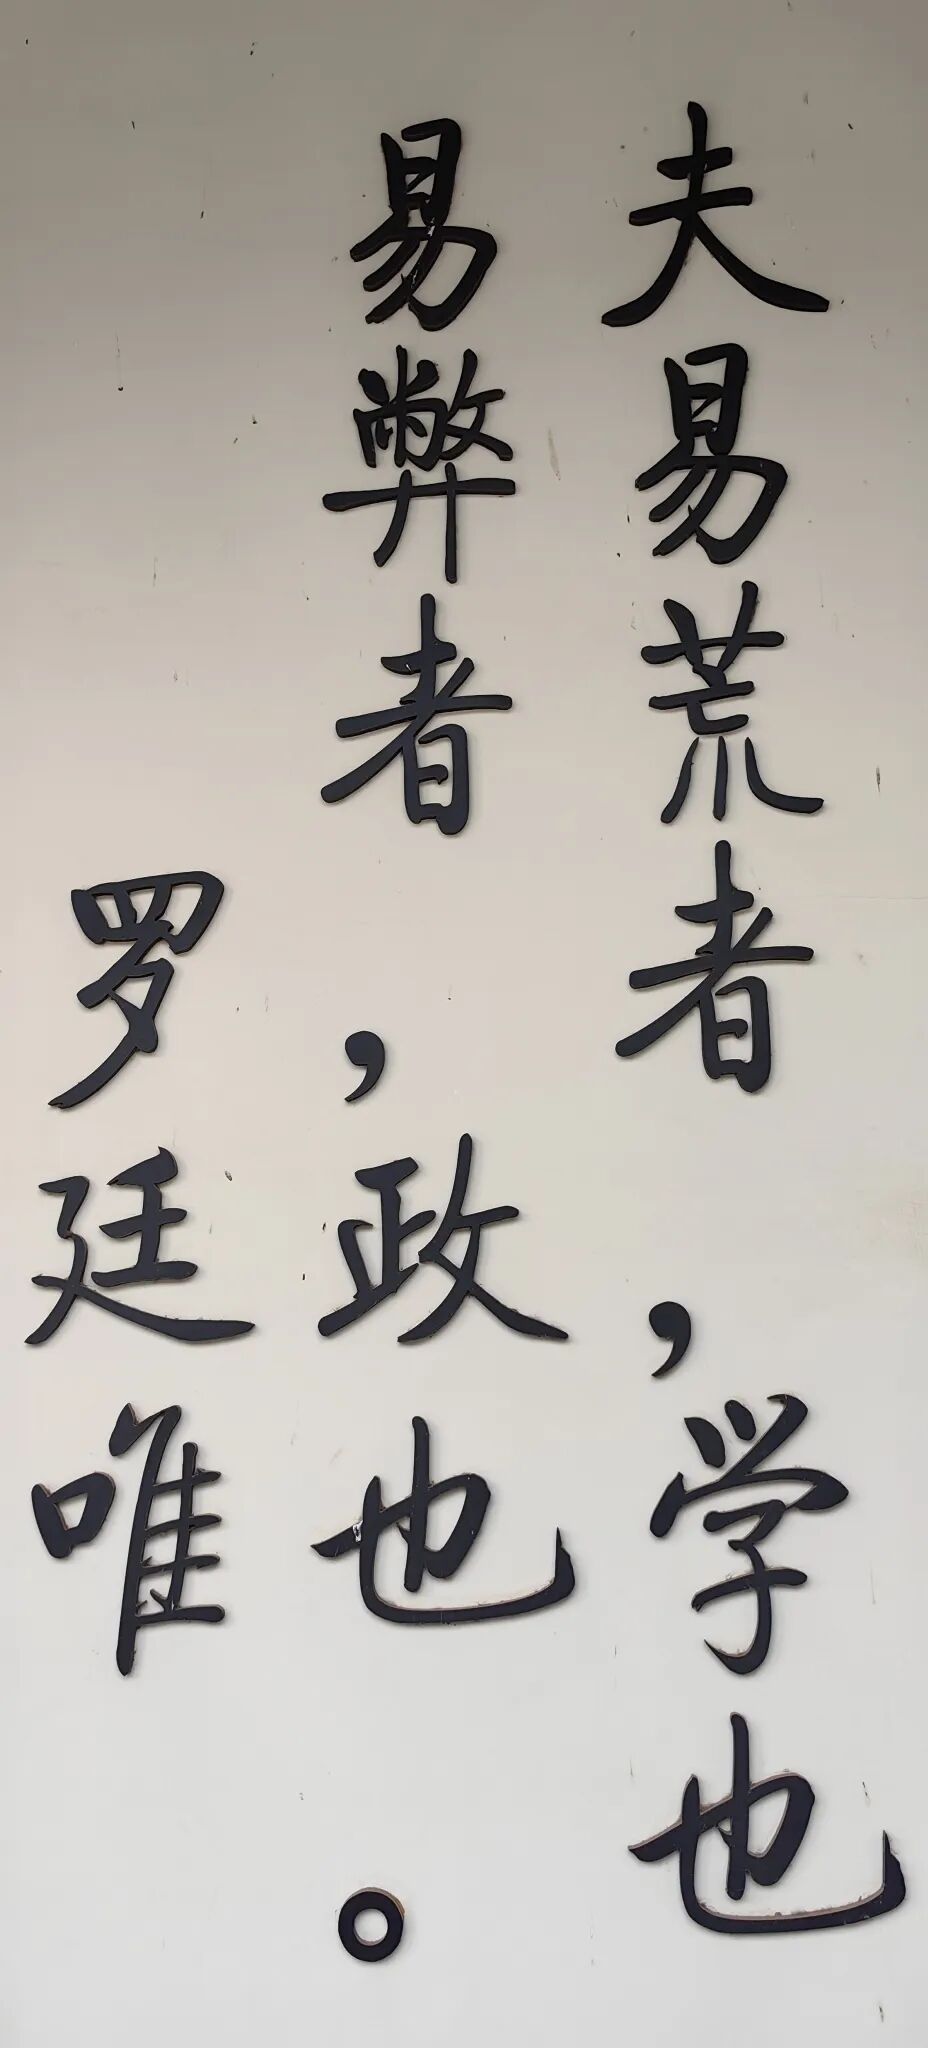 夫易荒者,学也
易弊者,政也。
罗廷唯